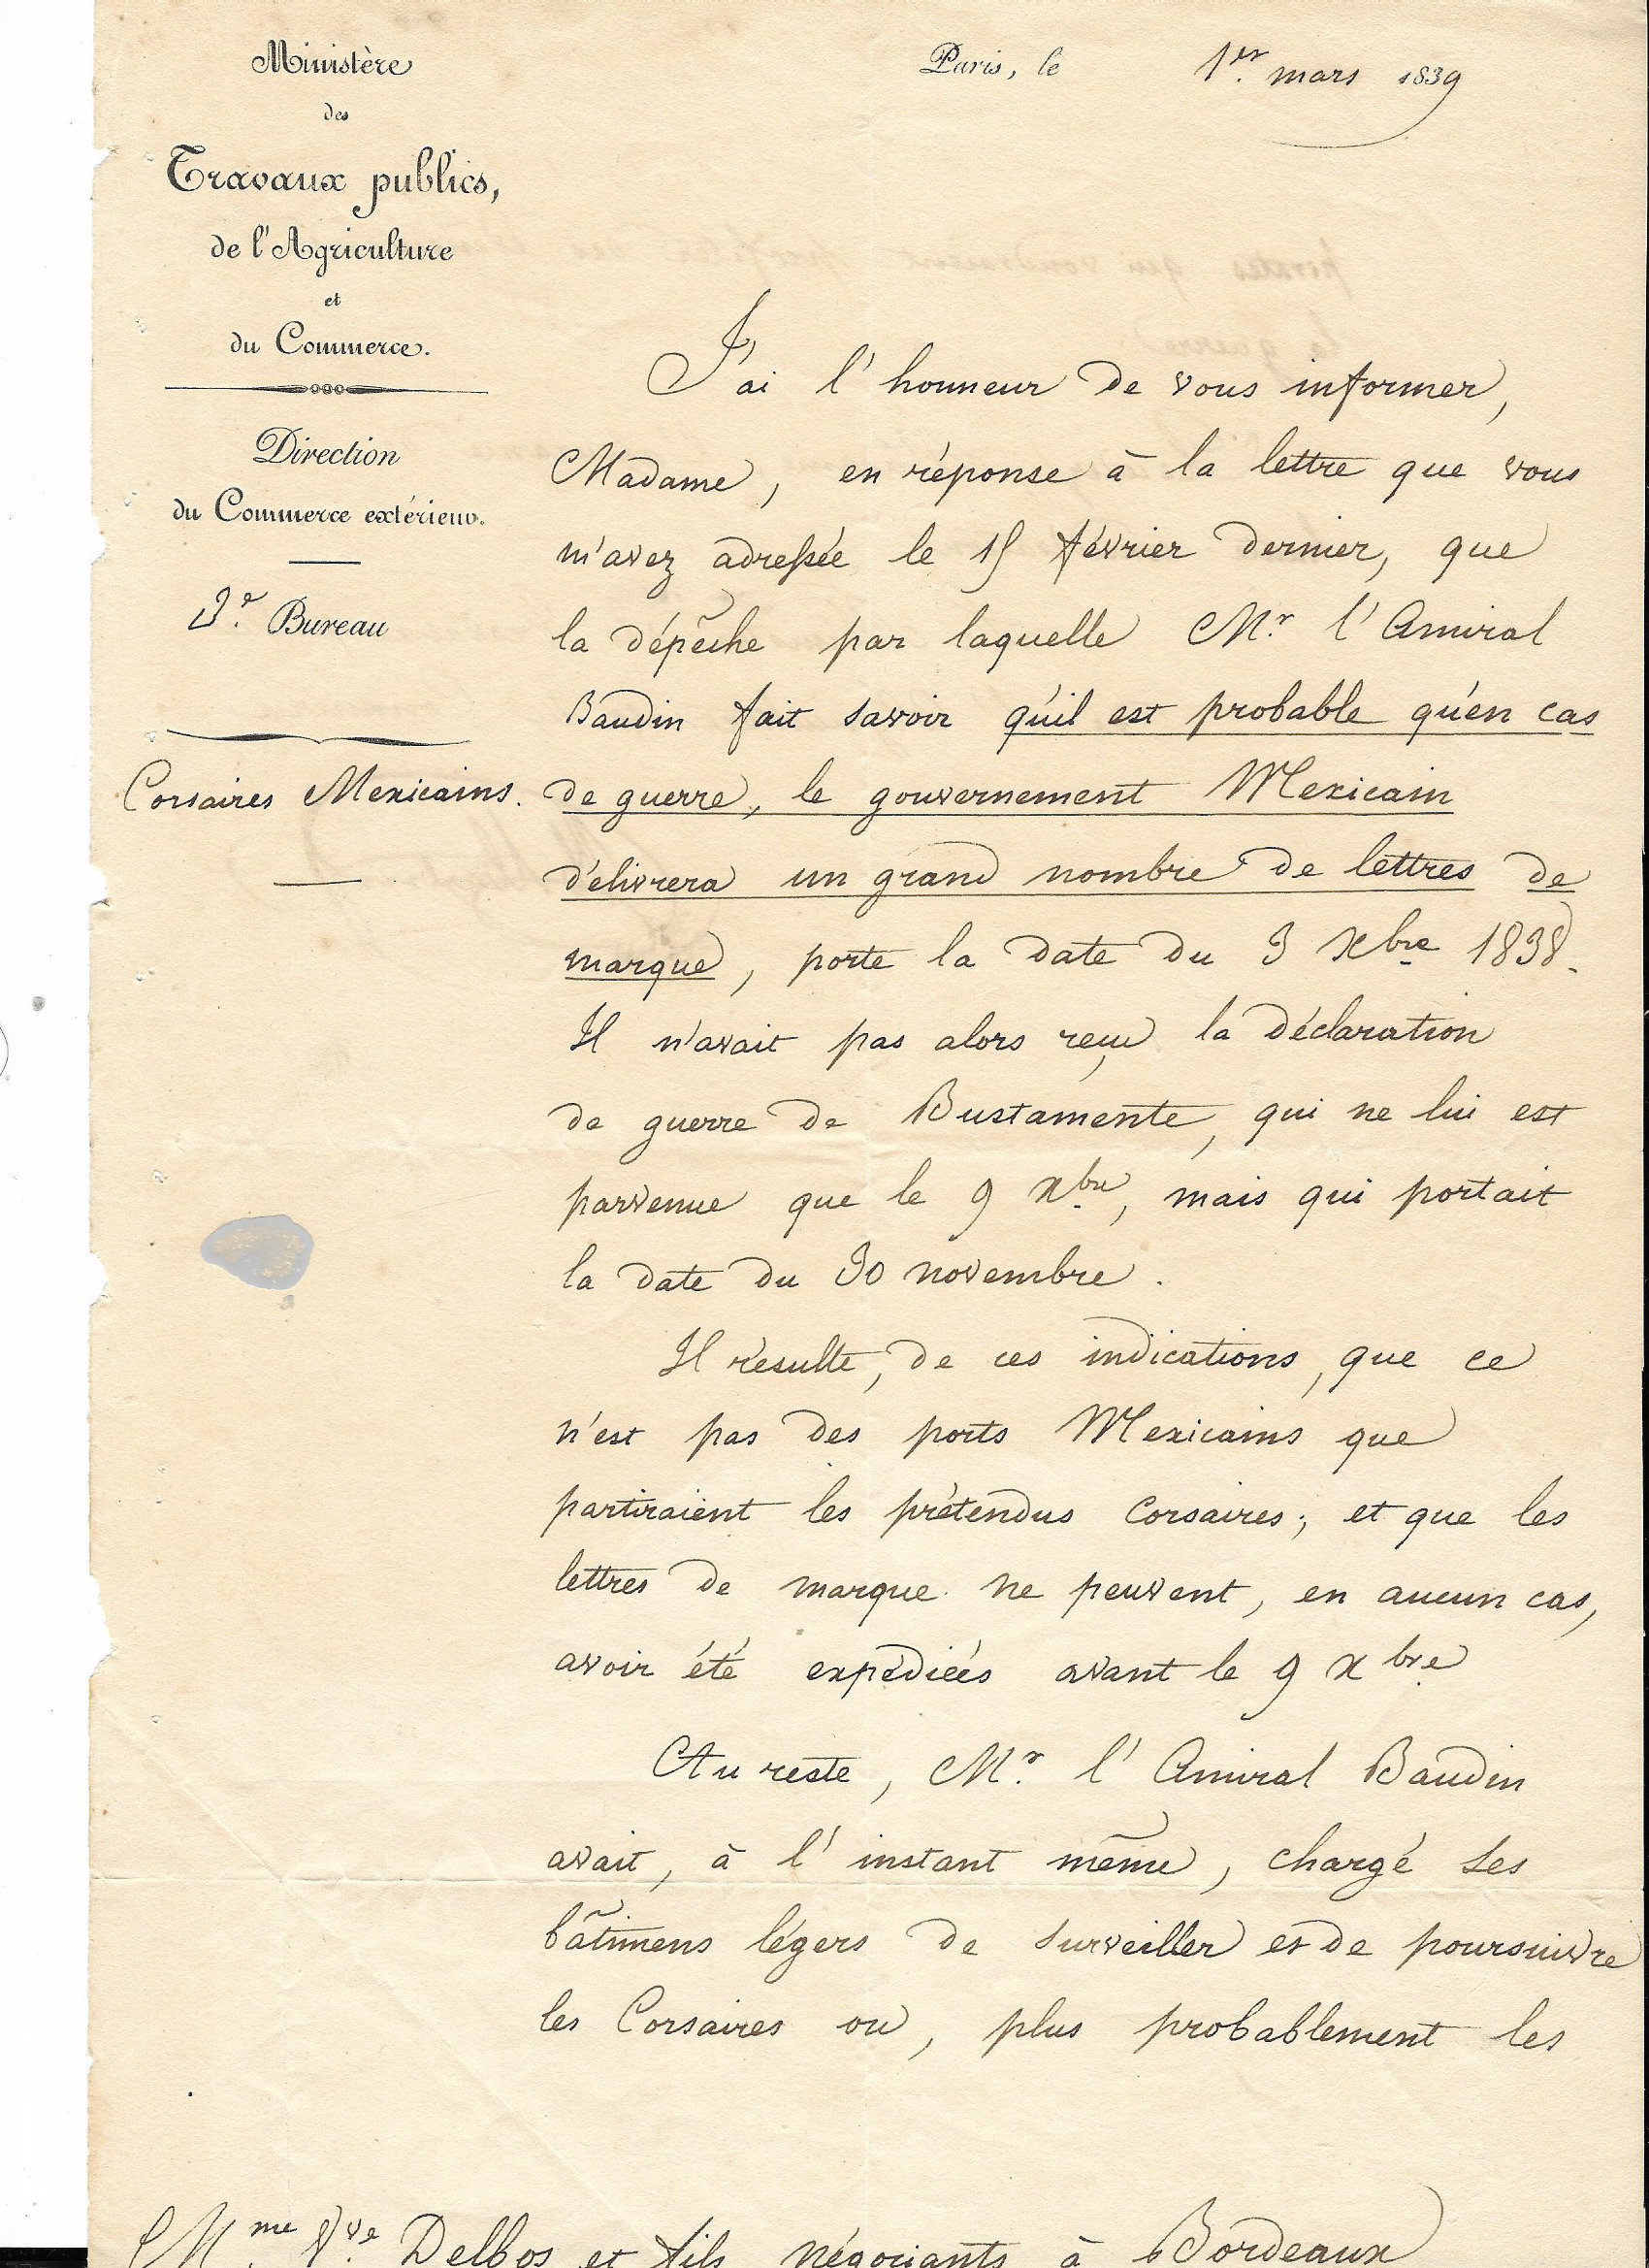 Ministère
des
Travaux publics,
de l'Agriculture
et
du Commerce.
Direction
du Commerce extérieur.
3e. Bureau
Corsaires Mexicains.
Paris, le 1er. mars 1839
J'ai l'honneur de vous informer,
Madame, en réponse à la lettre que vous
m'avez adressée le 15 février dernier, que
la dépêche par laquelle Mr. l'Amiral
Baudin fait savoir qu'il est probable qu'en cas
de guerre, le gouvernement Mexicain
délivrera un grand nombre de lettres de
marque, porte la date du 3 Xbre 1838.
Il n'avait pas alors reçu la déclaration
de guerre de Bustamente, qui ne lui est
parvenue que le 9 xbre, mais qui portait
la date du 30 novembre.
Il résulte, de ces indications, que ce
n'est pas des ports Mexicains que
partiraient les prétendus Corsaires; et que les
lettres de marque ne peuvent, en aucun cas,
avoir été expédiées avant le 9 xbre
Au reste, Mr. l'Amiral Baudin
avait, à l'instant même, chargé ses
bâtimens légers de surveiller et de poursuivre
les Corsaires ou, plus probablement les
Mme. Vve. Delbos et fils négociants à Bordeaux